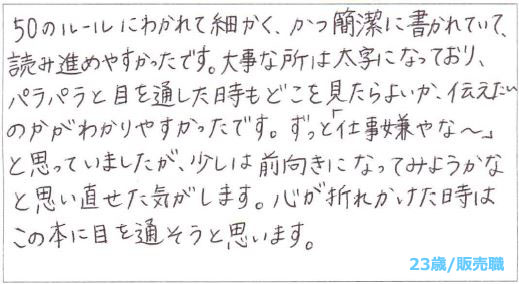 50のルールにわかれて細かく、かつ簡潔に書かれていて、
読み進めやすかったです。大事な所は太字になっており、
パラパラと目を通した時もどこを見たらよいか、伝えたい
のかがわかりやすかったです。ずっと「仕事嫌やな〜」
と思っていましたが、少しは前向きになってみようかな
と思い直せた気がします。心が折れかけた時は
この本に目を通そうと思います。
23歳/販売職